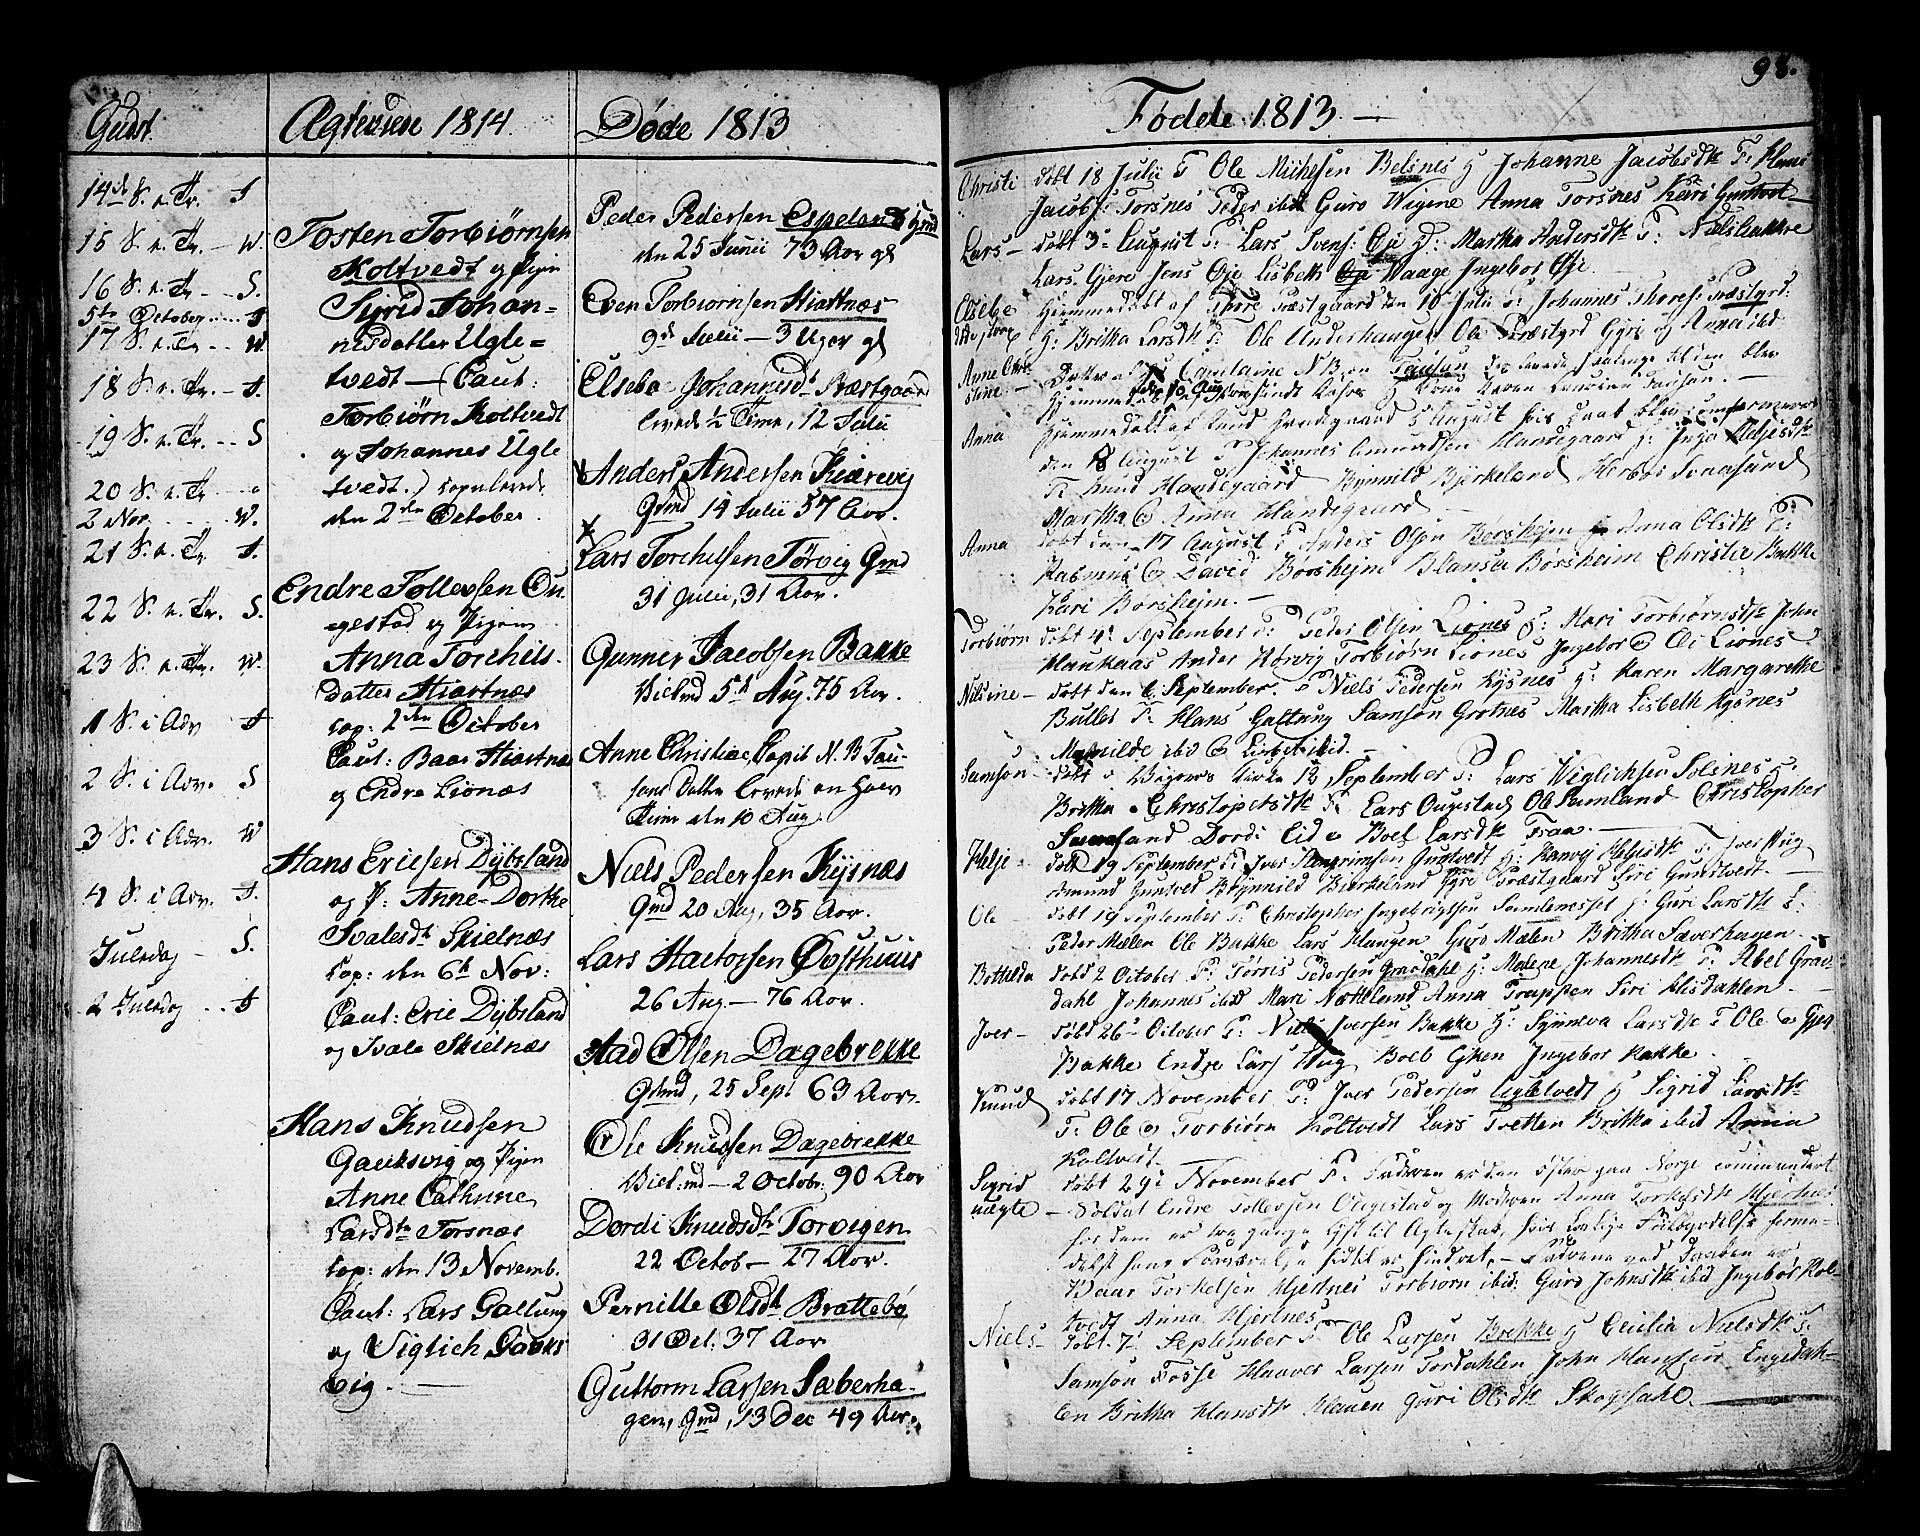 98.
Gudst.
14de S. e. Tr. S
15 S. e. Tr. — W.
16 S. e. Tr — S.
5te October ..... S
17 S. e. Tr — W
18 S. e. Tr. — S.
19 S. e. Tr. — S
20 S. e. Tr — o
2 Nov. W.
21 S. e. Tr S.
22 S. e. Tr. S.
23 S. e. Tr. W.
1 S. i Adv S
2 S. i Adv. S
3 S. i Adv. W
4 S. i Adv. S.
Juledag — S.
2 Juledag ... S
Ægteviede 1814.
Tosten Torbiørnsen
Koltvedt og Pigen
Sigrid Johan=
nisdatter Ugle=
tvedt — (Caut:
Torbiørn Koltvedt
og Johannes Ugle
tvedt.) copulerede
den 2den October.
Endre Tollevsen Ou-
gestad og Pigen
Anna Torchils-
datter Hiartnæs
cop: 2den October
Caut: Baar Hiartnæs
og Endre Lionæs
Hans Ericsen Dybsland
og P: Anne Dorthe
Ivalesdt Skielnæs
Cop: den 6te Nov:
Caut: Eric Dybsland
og Ivale Skielnæs
Hans Knudsen
Gauksvig og Pigen
Anne Cathrine
Larsdtr Torsnæs
cop: den 13 Novemb.
Caut: Lars Galtung
og Viglich Gauks
vig. —
Døde 1813
Peder Pedersen Espeland Gmd
den 25 Junii 73 Aar gl
Even Torbiørnsen Hiartnæs
9de Julii — 3 Uger gl
Elseba Johannesdt Præstgaard
levede ½ Time, 12 Julii
Anders Andersen Kiærevig
Gmd 14 Julii 57 Aar.
Lars Torchilsen Tørvig Gmd
31 Julii, 31 Aar.
Gunner Jacobsen Bakke
Vielmd 5te Aug. 75 Aar.
Anne Christine, Capit N. B Tau-
sens Datter levede en halv
Time den 10 Aug.
Niels Pedersen Kysnæs
Gmd 20 Aug, 35 Aar.
Lars Hactorsen Øvsthuus
26 Aug — 76 Aar.
Aad Olsen Dagebrekke
Gmd, 25 Sept 63 Aar.
Ole Knudsen Dagebrekke
Vielmd — 2 Octobr: 90 Aar
Dordi Knudsdtr Torvigen
22 Octob — 27 Aar.
Pernille Olsdt Brattebø
31 Oct: 37 Aar
Guttorm Larsen Saberha-
gen, Gmd, 13 Dec 49 Aar.
Fødde 1813. —
Christi døbt 18 Julii F Ole Michelsen Belsnes H Johanne Jacobsdtr F: Hans
Jacobs: Torsnes Peder ibid Guro Wigene Anna Torsnes Kari Guntvet
Lars — døbt 3 August F: Lars Svens: Øje H: Martha Andersdtr F: Niels Bakke
Lars Gjere Jens Øje Lisbeth Waage Ingebor Øje.
Elsebe Hjemmedøbt af Thore Præstgaard den 10 Julii F: Johannes Thores: Præstgrd:
H: Britha Larsdtr F: Ole Underhaugen Ole Præstgrd Gyri og Anna ibd
Anne Chri-
stine. Datter Capitaine N. B. Tausen
Anna Hjemmedøbt af Knud Handegaard 5 August
den 8 August F Johannes Amundsen Handegaard H: Inga Heljesdtr
F: Knud Handegaard Brynnild Bjerkeland Herbor Sonasund
Martha & Anna Handegaard —
Anna døbt den 17 August F Anders Olsen Børsheim H Anna Olsdtr F:
Rasmus & David Børsheim Børsheim Christie Bakke
Kari Børsheim. —
Torbiørn døbt 4 September F: Peder Olsen Lionæs H: Mari Torbiørnsdtr John
Haukaas Ander Hørvig Torbiørn Lionæs Ingebor & Oli Lionæs
Nilsine — døbt den 6 September. F Niels Pedersen Kysnes H: Karen Margarethe
Buller F: Hans Galtung Samson Grotnes Martha Lisbeth Kysnes
Magnilde ibid & Lisbet ibid. —
Samson — døbt Kirke 12 September F: Lars Wiglichsen Solsnes H:
Britha Christophersdtr F: Lars Ougestad Ole Samland Christopher
Samland Dordi Eid & Boel Larsdtr Traa. —
Helje — døbt 19 September F: Iver Guntvedt H: Ranvej Heljesdtr F: Iver Hug
Amund Guntved Brynnild Bierkeland Gyri Præstgaard Siri Guntvedt —
Ole døbt 19 September F: Christopher Ingebrigtsen Samlenesset H: Guri Larsdtr F:
Peder Mælen Ole Bakke Lars Haugen Guro Mælen Britha Saverhagen.
Bothilda døbt 2 October F: Tørris Pedersen Gravdahl H: Malene Johannesdtr F: Abel Grav-
dahl Johannes ibid Mari Nætteland Anna Trappen Siri Hisdahlen. —
Iver — døbt 26 October F: Niels Iversen Bakke H: Synneva Larsdtr F Ole &
Bakke Endre Lars Hug Boel Ingebor Bakke.
Knud døbt 17 November F: Iver Pedersen Ugletvedt H Sigrid Larsdtr
F: Ole & Torbiørn Koltvedt Lars Tvetten Britha ibid Anna
Koltvedt.
Sigrid
uægte døbt 29 November F: Faderen er den efter paa Norge commandert
— Soldat Endre Tollevsen Ougestad og Moderen Anna Torkelsdtr Hjertnes
Baar Torkelsen Hjertnes Torbiørn ibid: Guro Johnsdtr ibid Ingebor Kol-
tvedt Anna Hjertnes
Niels døbt 7 September F Ole Larsen Brekke H Cecilia Nielsdtr F:
Samson Fosse Haaver Larsen Tordahlen John Hansen Engedah-
len Britha Hansdtr Hauen Guri Olsdtr Skogsahl —